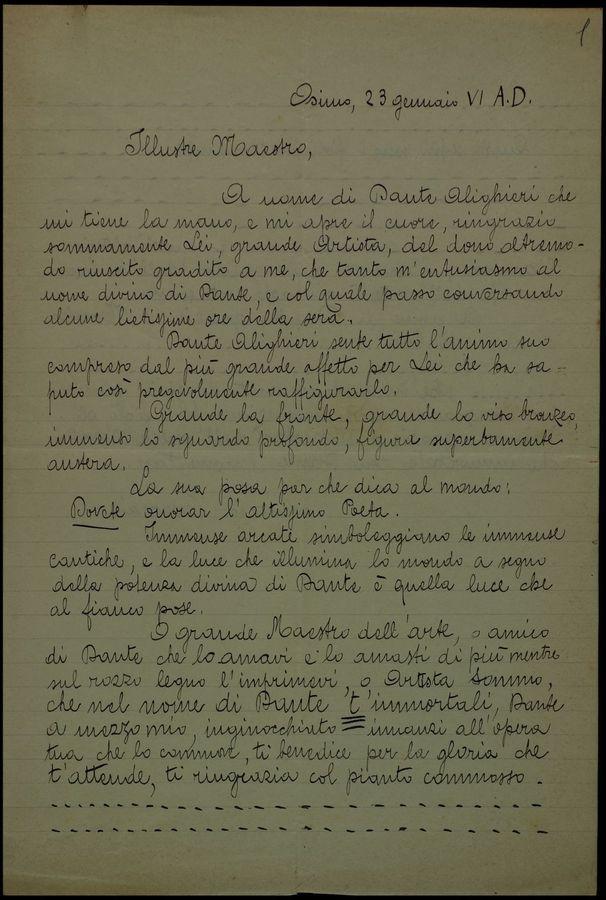 1
Osimo, 23 gennaio VI A.D.
Illustre Maestro,
A nome di Dante Alighieri che
mi tiene la mano, e mi apre il cuore, ringrazio
sommamente Lei, grande Artista, del dono oltremo-
do riuscito gradito a me, che tanto m'entusiasmo al
nome divino di Dante, e col quale passo conversando
alcune lietissime ore della sera.
Dante Alighieri sente tutto l'animo suo
compreso dal più grande affetto per Lei che ha sa-
puto così pregevolmente raffigurarlo.
Grande la fronte, grande lo viso bronzeo,
immenso lo sguardo profondo, figura superbamente
austera.
La sua posa par che dica al mondo:
Dovete onorar l'altissimo Poeta.
Immense arcate simboleggiano le immense
cantiche, e la luce che illumina lo mondo a segno
della potenza divina di Dante è quella luce che
al fianco pose.
O grande Maestro dell'arte, o amico
di Dante che lo amavi e lo amasti di più mentre
sul rozzo legno l'imprimevi, o Artista Sommo,
che nel nome di Dante t'immortali, Dante
a mezzo mio, inginocchiato innanzi all'opera
tua che lo commuove, ti benedice per la gloria che
t'attende, ti ringrazia col pianto commosso.